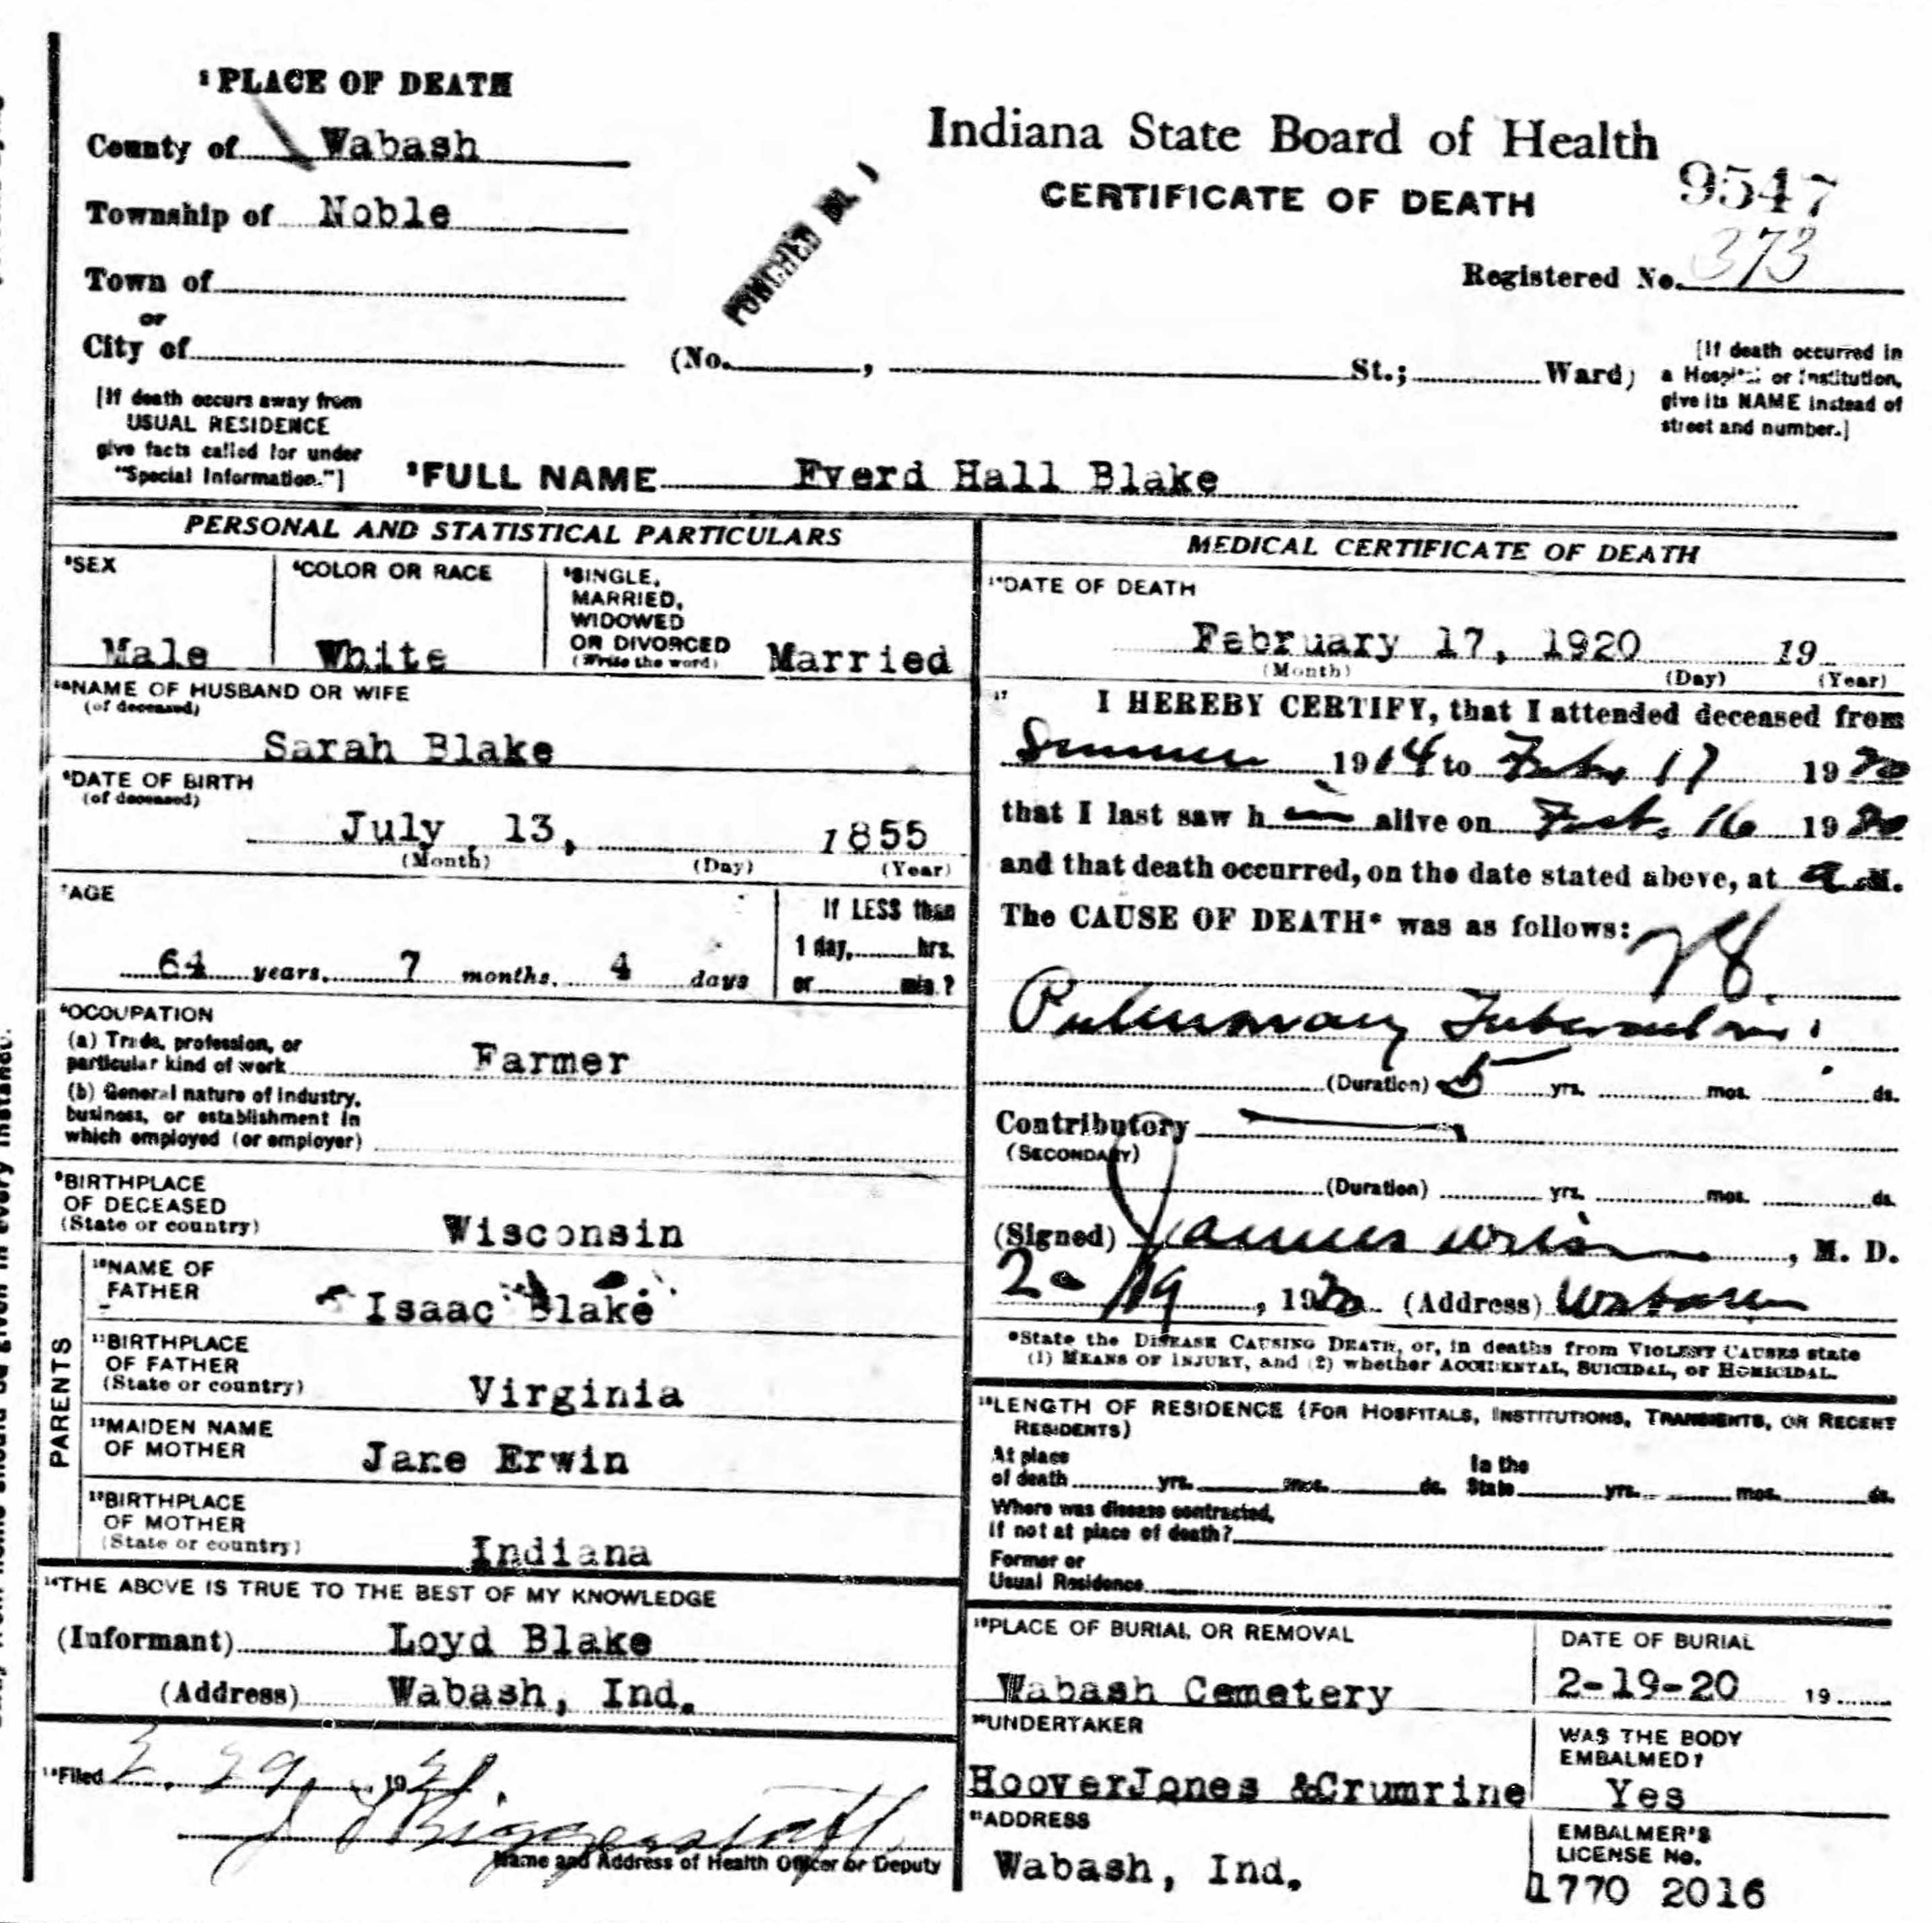 ¹PLACE OF DEATH
County of Wabash
Township of Noble
Town of
or
City of
Indiana State Board of Health
CERTIFICATE OF DEATH
9547
Registered No. 373
PUNCHED
(No. , St.; Ward)
[If death occurred in
a Hospital or Institution,
give its NAME instead of
street and number.]
[If death occurs away from
USUAL RESIDENCE
give facts called for under
"Special Information."]
²FULL NAME Everd Hall Blake
PERSONAL AND STATISTICAL PARTICULARS
³SEX
Male
⁴COLOR OR RACE
White
⁵SINGLE,
MARRIED,
WIDOWED
OR DIVORCED
(Write the word)
Married
⁵ᵃNAME OF HUSBAND OR WIFE
(of deceased)
Sarah Blake
⁶DATE OF BIRTH
(of deceased)
July 13, 1855
(Month) (Day) (Year)
⁷AGE
64 years, 7 months, 4 days
If LESS than
1 day, hrs.
or min?
⁸OCCUPATION
(a) Trade, profession, or
particular kind of work Farmer
(b) General nature of industry,
business, or establishment in
which employed (or employer)
⁹BIRTHPLACE
OF DECEASED
(State or country)
Wisconsin
PARENTS
¹⁰NAME OF
FATHER
Isaac Blake
¹¹BIRTHPLACE
OF FATHER
(State or country)
Virginia
¹²MAIDEN NAME
OF MOTHER
Jane Erwin
¹³BIRTHPLACE
OF MOTHER
(State or country)
Indiana
¹⁴THE ABOVE IS TRUE TO THE BEST OF MY KNOWLEDGE
(Informant) Loyd Blake
(Address) Wabash, Ind.
¹⁵Filed 29, 19
Biggerstaff
Name and Address of Health Officer or Deputy
MEDICAL CERTIFICATE OF DEATH
¹⁶DATE OF DEATH
February 17, 1920 19
(Month) (Day) (Year)
¹⁷ I HEREBY CERTIFY, that I attended deceased from
Summer 1914 to Feby 17 1920
that I last saw him alive on Feb. 16 1920
and that death occurred, on the date stated above, at a M.
The CAUSE OF DEATH* was as follows:
28
Pulmonary Tuberculosis
(Duration) 5 yrs. mos. ds.
Contributory
(SECONDARY)
(Duration) yrs. mos. ds.
(Signed) James Wilson, M. D.
2-19, 1920 (Address) Wabash
*State the DISEASE CAUSING DEATH, or, in deaths from VIOLENT CAUSES state
(1) MEANS OF INJURY, and (2) whether ACCIDENTAL, SUICIDAL, or HOMICIDAL.
¹⁸LENGTH OF RESIDENCE (FOR HOSPITALS, INSTITUTIONS, TRANSIENTS, OR RECENT
RESIDENTS)
At place
of death yrs. mos. ds.
In the
State yrs. mos. ds.
Where was disease contracted,
if not at place of death?
Former or
Usual Residence
¹⁹PLACE OF BURIAL OR REMOVAL
Wabash Cemetery
DATE OF BURIAL
2-19-20 19
²⁰UNDERTAKER
HooverJones &Crumrine
WAS THE BODY
EMBALMED?
Yes
²¹ADDRESS
Wabash, Ind.
EMBALMER'S
LICENSE No.
1770 2016